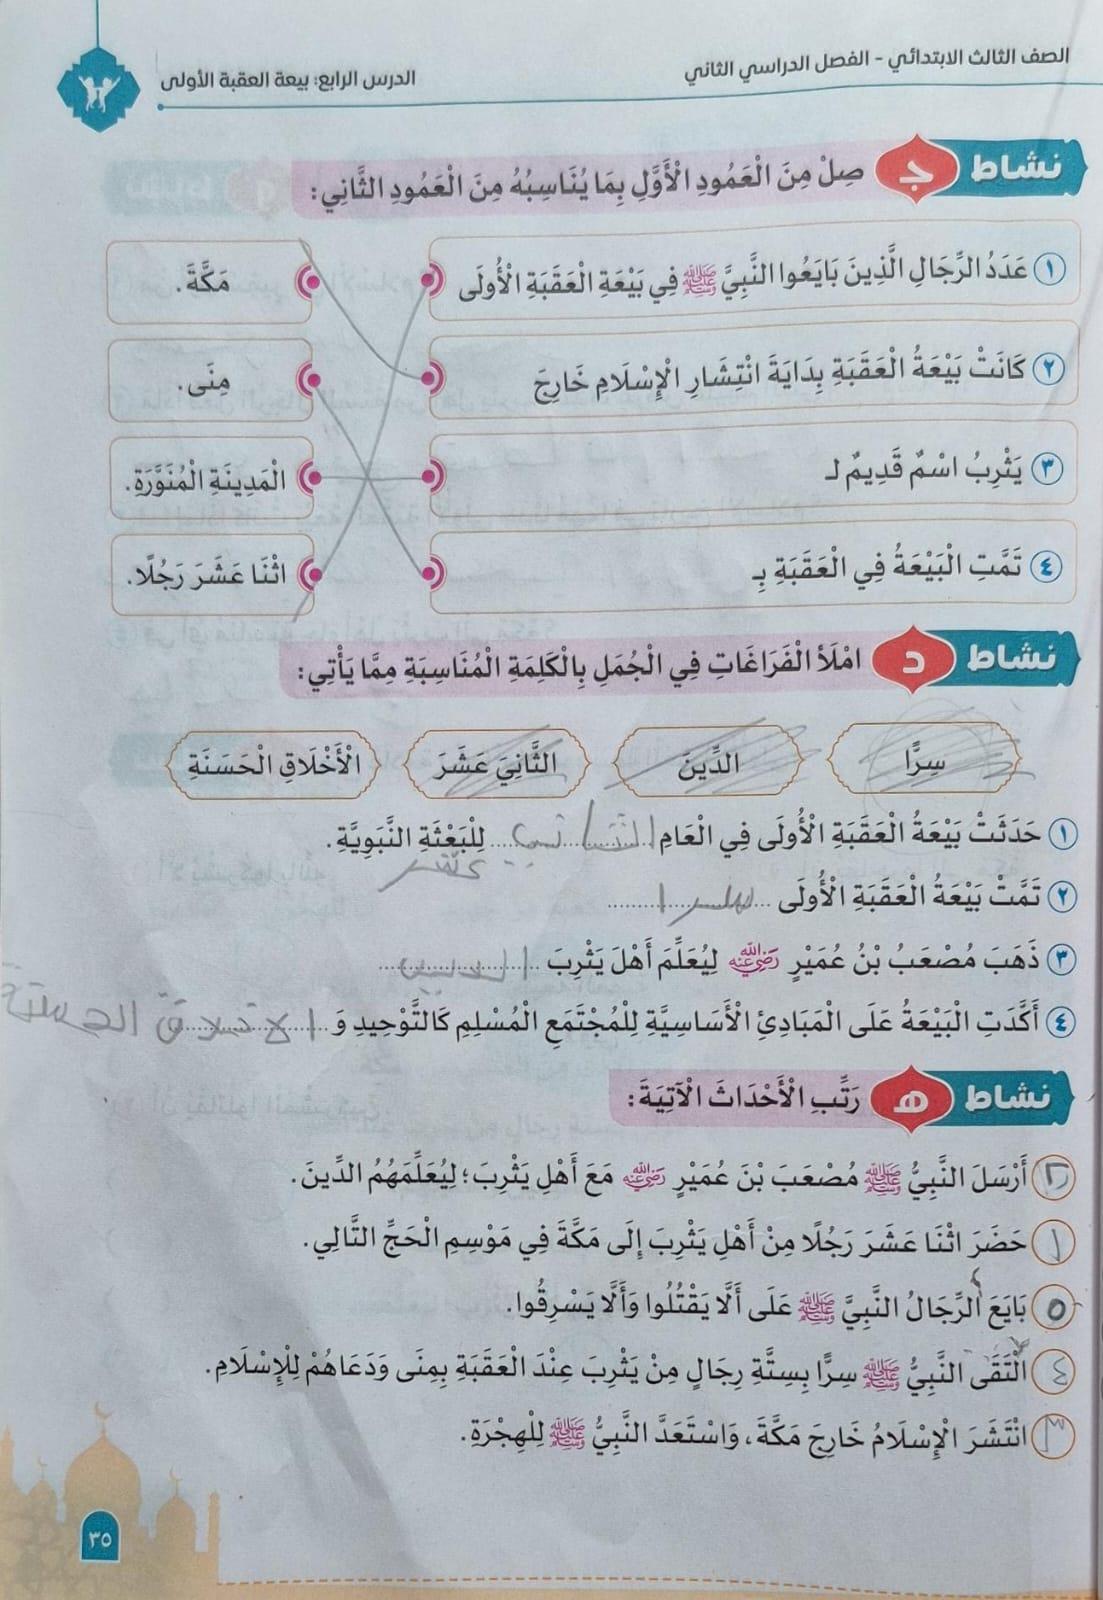 الصف الثالث الابتدائي - الفصل الدراسي الثاني
الدرس الرابع: بيعة العقبة الأولى
نشاط ج صِلْ مِنَ الْعَمُودِ الْأَوَّلِ بِمَا يُنَاسِبُهُ مِنَ الْعَمُودِ الثَّانِي:
١ عَدَدُ الرِّجَالِ الَّذِينَ بَايَعُوا النَّبِيَّ ﷺ فِي بَيْعَةِ الْعَقَبَةِ الْأُولَى
مَكَّةَ.
٢ كَانَتْ بَيْعَةُ الْعَقَبَةِ بِدَايَةَ انْتِشَارِ الْإِسْلَامِ خَارِجَ
مِنَى.
٣ يَثْرِبُ اسْمٌ قَدِيمٌ لـ
الْمَدِينَةِ الْمُنَوَّرَةِ.
٤ تَمَّتِ الْبَيْعَةُ فِي الْعَقَبَةِ بِـ
اثْنَا عَشَرَ رَجُلًا.
نشاط د امْلَأ الْفَرَاغَاتِ فِي الْجُمَلِ بِالْكَلِمَةِ الْمُنَاسِبَةِ مِمَّا يَأْتِي:
سِرًّا الدِّينَ الثَّانِيَ عَشَرَ الْأَخْلَاقِ الْحَسَنَةِ
١ حَدَثَتْ بَيْعَةُ الْعَقَبَةِ الْأُولَى فِي الْعَامِ الثاني لِلْبَعْثَةِ النَّبَوِيَّةِ.
عشر
٢ تَمَّتْ بَيْعَةُ الْعَقَبَةِ الْأُولَى سرا
٣ ذَهَبَ مُصْعَبُ بْنُ عُمَيْرٍ رَضِيَ اللَّهُ عَنْهُ لِيُعَلِّمَ أَهْلَ يَثْرِبَ الدين
٤ أَكَّدَتِ الْبَيْعَةُ عَلَى الْمَبَادِئِ الْأَسَاسِيَّةِ لِلْمُجْتَمَعِ الْمُسْلِمِ كَالتَّوْحِيدِ وَ الاخلاق الحسنة
نشاط هـ رَتِّبِ الْأَحْدَاثَ الْآتِيَةَ:
٢ أَرْسَلَ النَّبِيُّ ﷺ مُصْعَبَ بْنَ عُمَيْرٍ رَضِيَ اللَّهُ عَنْهُ مَعَ أَهْلِ يَثْرِبَ؛ لِيُعَلِّمَهُمُ الدِّينَ.
١ حَضَرَ اثْنَا عَشَرَ رَجُلًا مِنْ أَهْلِ يَثْرِبَ إِلَى مَكَّةَ فِي مَوْسِمِ الْحَجِّ التَّالِي.
٥ بَايَعَ الرِّجَالُ النَّبِيَّ ﷺ عَلَى أَلَّا يَقْتُلُوا وَأَلَّا يَسْرِقُوا.
٤ الْتَقَى النَّبِيُّ ﷺ سِرًّا بِسِتَّةِ رِجَالٍ مِنْ يَثْرِبَ عِنْدَ الْعَقَبَةِ بِمِنَى وَدَعَاهُمْ لِلْإِسْلَامِ.
٣ انْتَشَرَ الْإِسْلَامُ خَارِجَ مَكَّةَ، وَاسْتَعَدَّ النَّبِيُّ ﷺ لِلْهِجْرَةِ.
٣٥